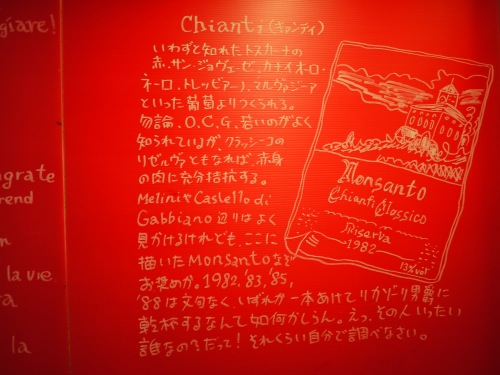 giare!
ngrate
rend
n
la vie
ra
la
Chianti (キァンティ)
いわずと知れたトスカーナの
赤。サン・ジョヴェーゼ、カナイオーロ・
ネーロ、トレッビアーノ、マルヴァジーア
といった葡萄よりつくられる。
勿論、O.C.G、若いのがよく
知られているが、クラッシーコの
リゼルヴァともなれば、赤身
の肉に充分拮抗する。
MeliniやCastello di
Gabbiano辺りはよく
見かけるけれども、ここに
描いたMonsantoなど
お奨めか。1982、'83、'85、
'88は文句なく、いずれか一本あけてリカゾリ男爵に
乾杯するなんて如何かしらん。えっ、その人いったい
誰なの?だって!それくらい自分で調べなさい。
Monsanto
Chianti Classico
Riserva
1982
13%vol